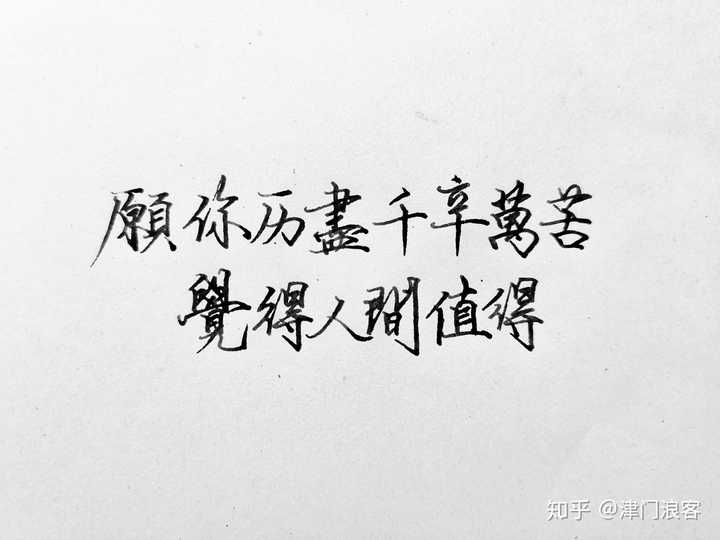 願你历盡千辛萬苦
覺得人間值得
知乎 @津门浪客